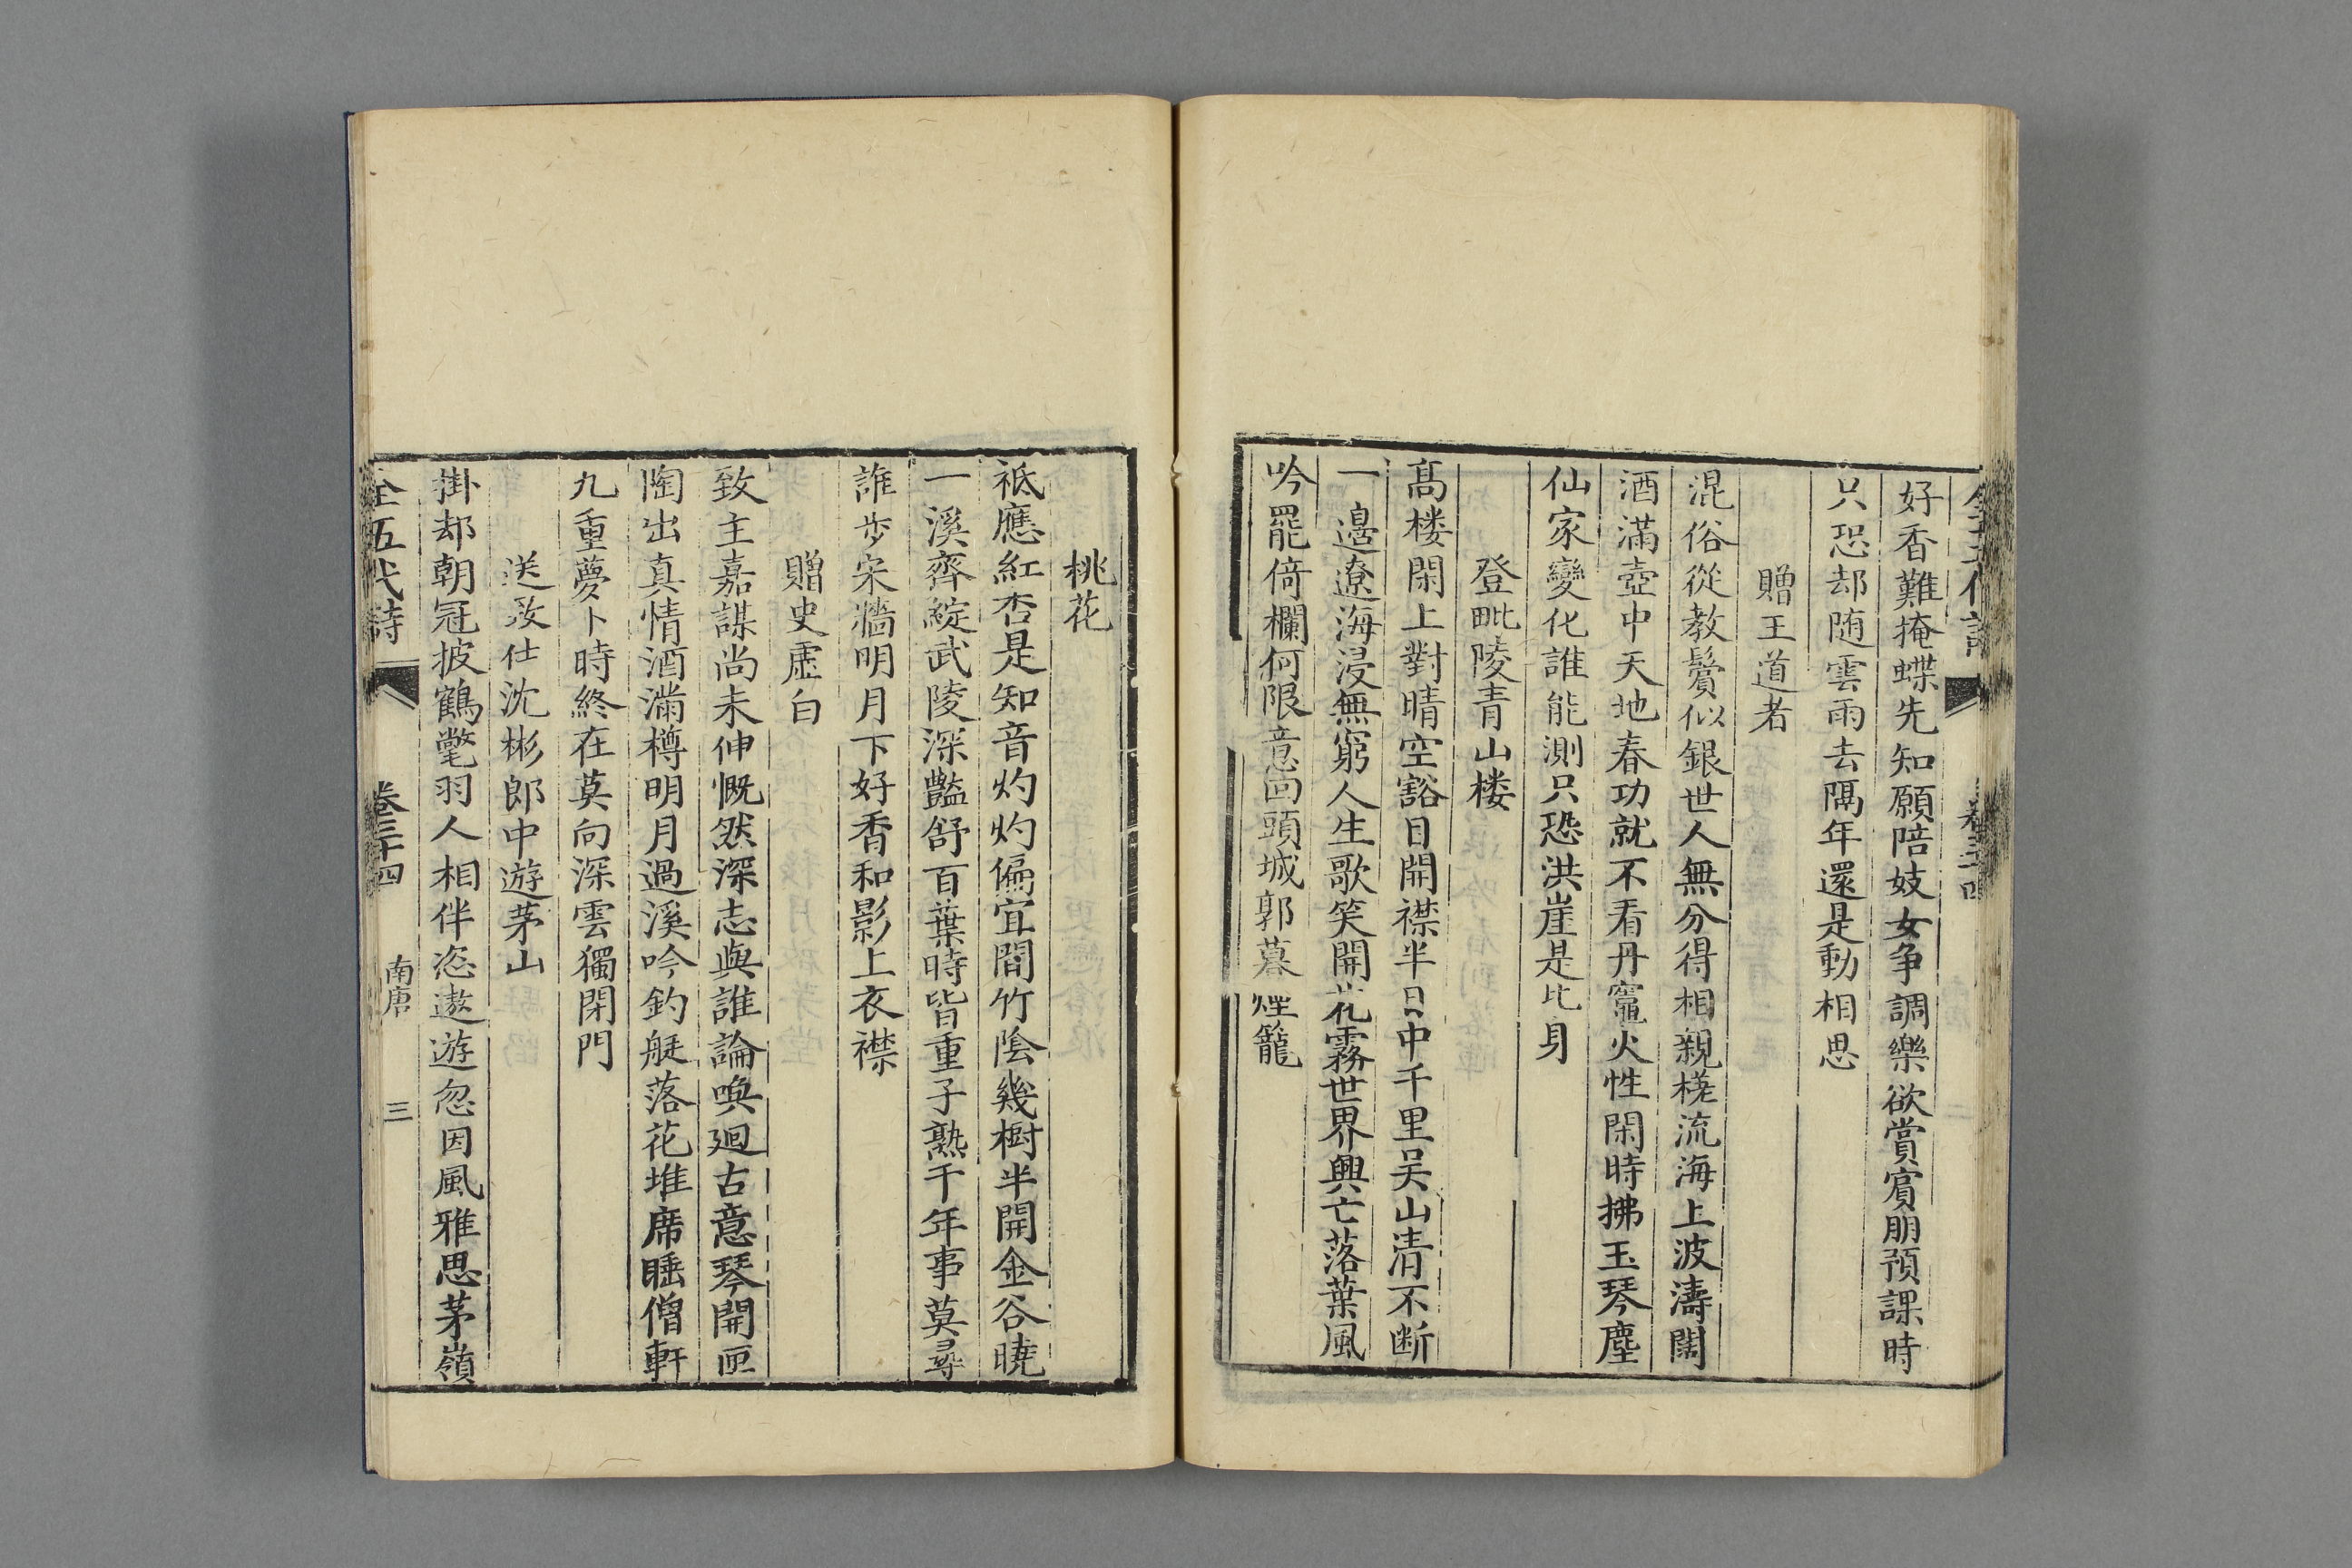 全五代詩 卷三十四
好香難掩蝶先知願陪妓女争調樂欲賞賓朋預課時
只恐却随雲雨去隔年還是動相思
贈王道者
混俗從教鬢似銀世人無分得相親槎流海上波濤闊
酒滿壺中天地春功就不看丹竈火性閑時拂玉琴塵
仙家變化誰能測只恐洪崖是此身
登毗陵青山楼
髙楼閑上對晴空豁目開襟半日中千里吴山清不断
一邊遼海浸無窮人生歌笑開花霧世界興亡落葉風
吟罷倚欄何限意回頭城郭暮煙籠
桃花
祇應紅杏是知音灼灼偏宜間竹陰幾樹半開金谷曉
一溪齊綻武陵深豔舒百葉時皆重子熟千年事莫尋
誰步宋牆明月下好香和影上衣襟
贈史虛白
致主嘉謀尚未伸慨然深志與誰論喚廻古意琴開匣
陶出真情酒滿樽明月過溪吟釣艇落花堆席睡僧軒
九重夢卜時終在莫向深雲獨閉門
送致仕沈彬郎中遊茅山
掛却朝冠披鶴氅羽人相伴恣遨遊忽因風雅思茅嶺
全五代詩 卷三十四 南唐 三